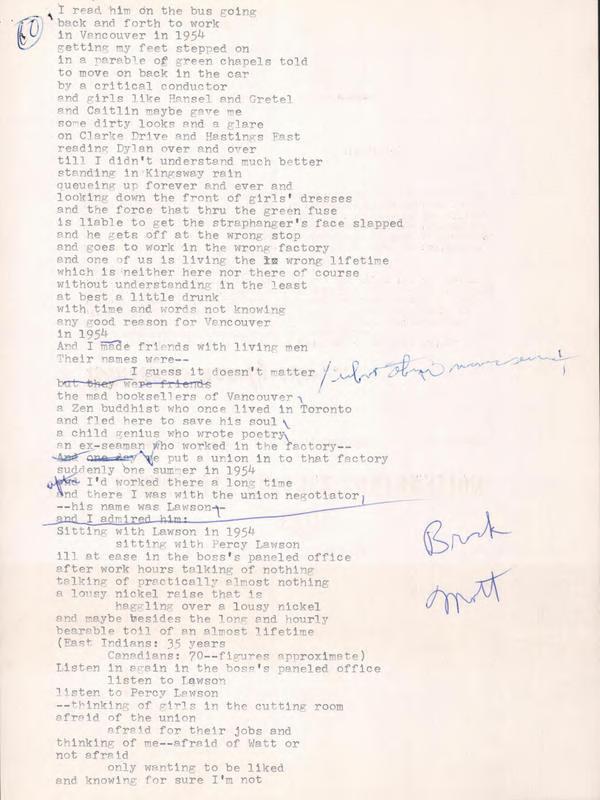 60
I read him on the bus going
back and forth to work
in Vancouver in 1954
getting my feet stepped on
in a parable of green chapels told
to move on back in the car
by a critical conductor
and girls like Hansel and Gretel
and Caitlin maybe gave me
some dirty looks and a glare
on Clarke Drive and Hastings East
reading Dylan over and over
till I didn't understand much better
standing in Kingsway rain
queueing up forever and ever and
looking down the front of girls' dresses
and the force that thru the green fuse
is liable to get the straphanger's face slapped
and he gets off at the wrong stop
and goes to work in the wrong factory
and one of us is living the wrong lifetime
which is neither here nor there of course
without understanding in the least
at best a little drunk
with time and words not knowing
any good reason for Vancouver
in 1954
And I made friends with living men
Their names were--
I guess it doesn't matter / what their names were
but they were friends
the mad booksellers of Vancouver
a Zen buddhist who once lived in Toronto
and fled here to save his soul
a child genius who wrote poetry
an ex-seaman who worked in the factory--
And one day we put a union in to that factory
suddenly one summer in 1954
after I'd worked there a long time
and there I was with the union negotiator,
--his name was Lawson--
and I admired him:
Sitting with Lawson in 1954
sitting with Percy Lawson
ill at ease in the boss's paneled office
after work hours talking of nothing
talking of practically almost nothing
a lousy nickel raise that is
haggling over a lousy nickel
and maybe besides the long and hourly
bearable toil of an almost lifetime
(East Indians: 35 years
Canadians: 70--figures approximate)
Listen in again in the boss's paneled office
listen to Lawson
listen to Percy Lawson
--thinking of girls in the cutting room
afraid of the union
afraid for their jobs and
thinking of me--afraid of Watt or
not afraid
only wanting to be liked
and knowing for sure I'm not
Brock
Mott